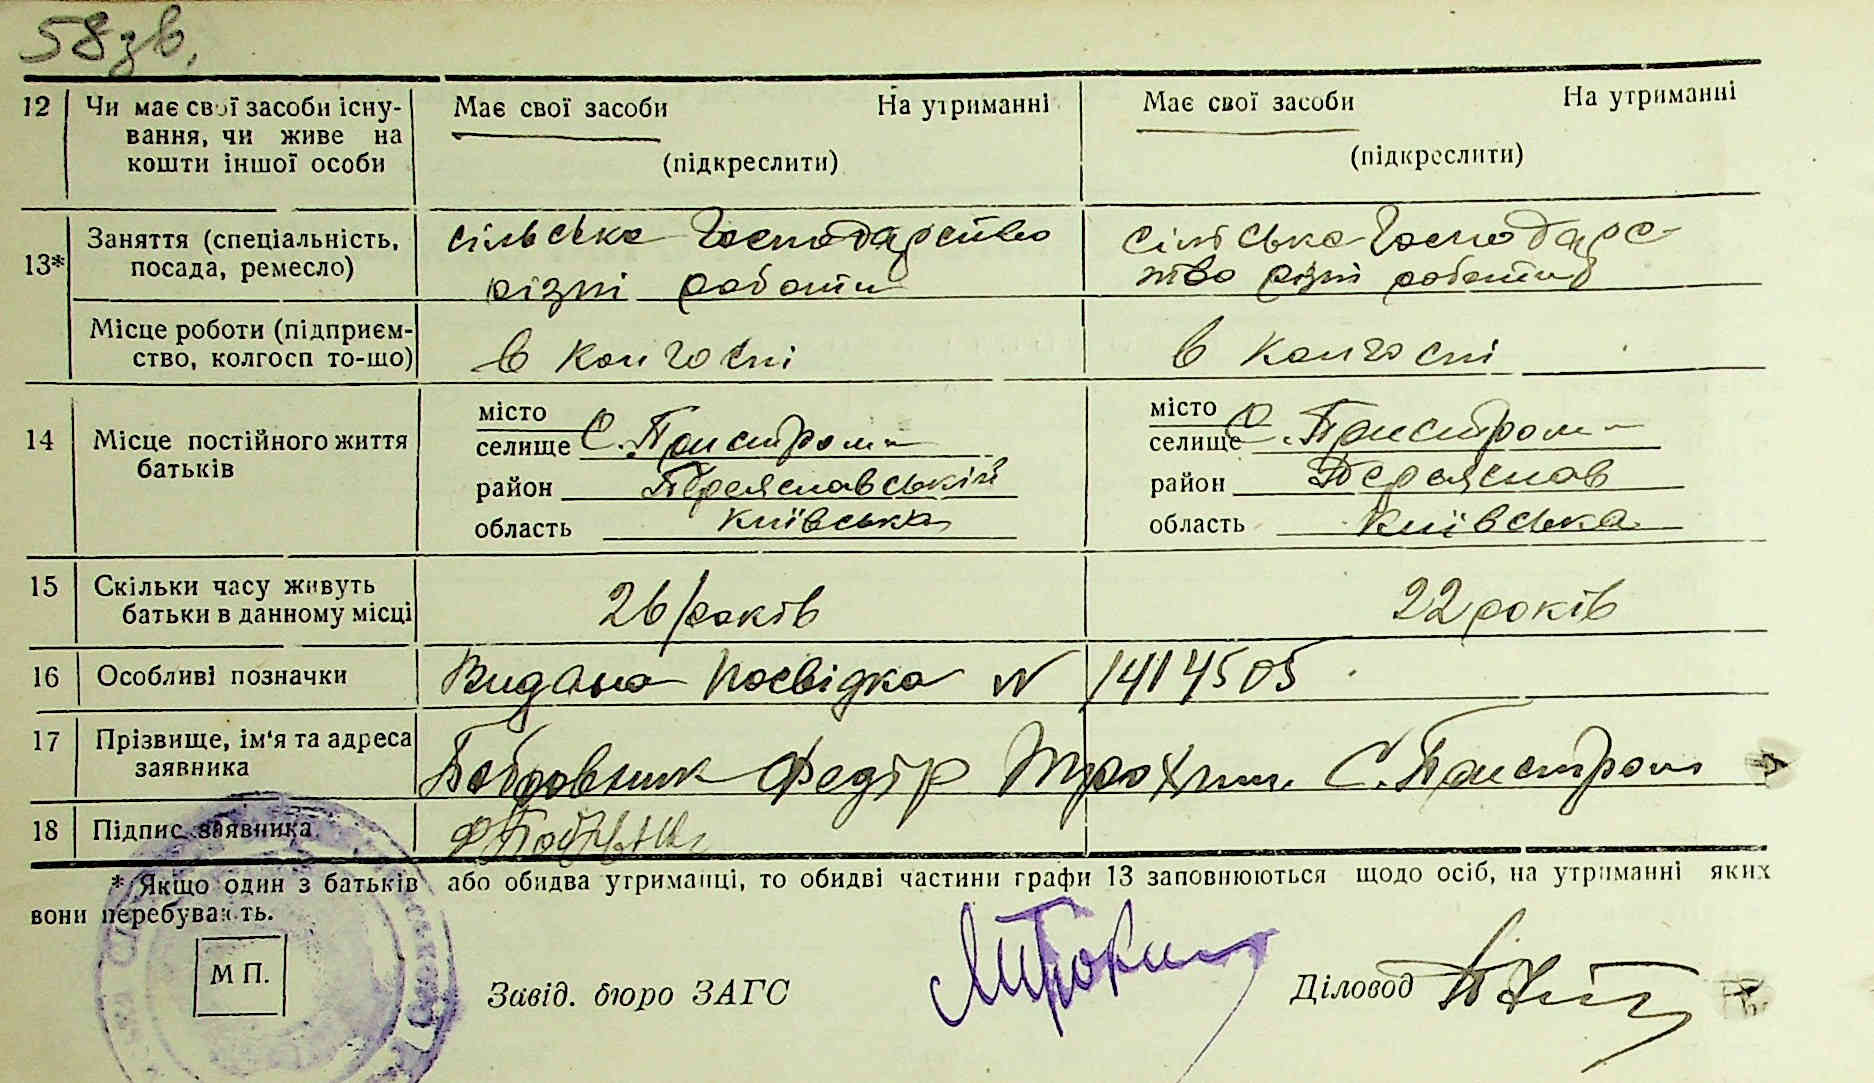 58 зв.
12 Чи має свої засоби існування, чи живе на кошти іншої особи
Має свої засоби На утриманні
(підкреслити)
Має свої засоби На утриманні
(підкреслити)
13* Заняття (спеціальність, посада, ремесло)
сільське господарство
різні роботи
сільське господарс
тво різні роботи
Місце роботи (підприємство, колгосп то-що)
в колгоспі
в колгоспі
14 Місце постійного життя батьків
місто
селище С. Пристроми
район Переяславський
область Київська
місто
селище С. Пристроми
район Переяслав
область Київська
15 Скільки часу живуть батьки в данному місці
26 років
22 років
16 Особливі позначки
Видана посвідка № 1414505
17 Прізвище, ім'я та адреса заявника
Бобровник Федір Трохим. С. Пристром
18 Підпис заявника
* Якщо один з батьків або обидва утриманці, то обидві частини графи 13 заповнюються щодо осіб, на утриманні яких
вони перебувають.
М П.
Завід. бюро ЗАГС
Діловод